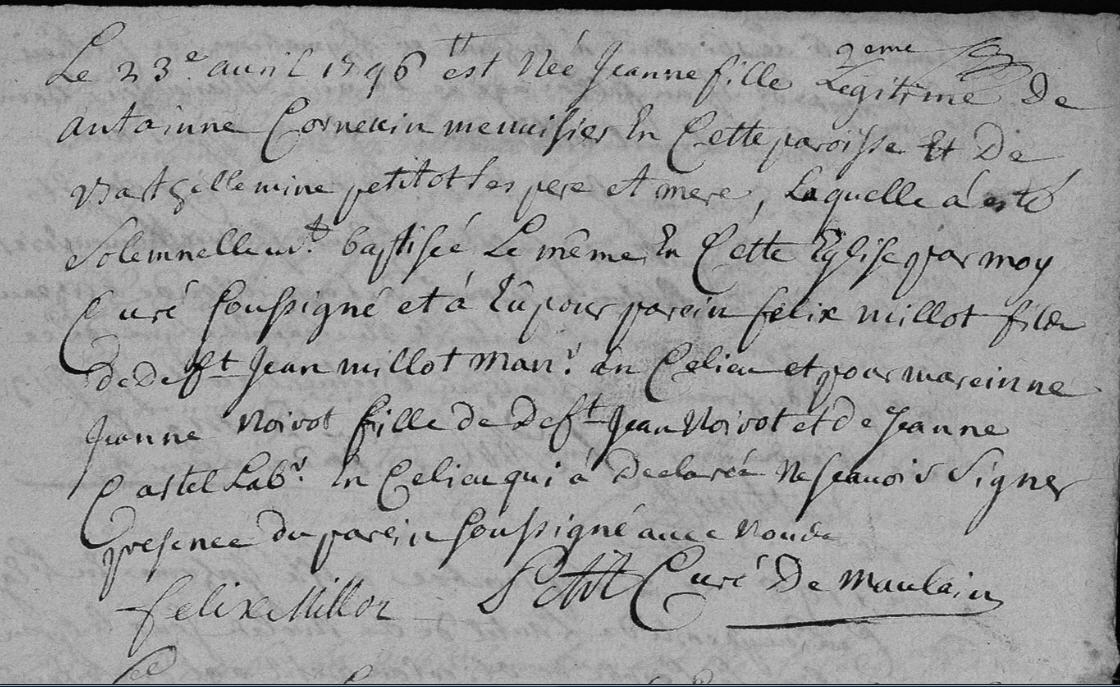 Le 23e avril 1746 est née Jeanne fille 2eme Legitime De
antoinne Cornevin menuisier En Cette paroisse Et De
Barthellemine petitot ses pere et mere, Laquelle à esté
Solemnellemt baptiseé Le même En Cette Eglise par moy
Curé soussigné et à Eû pour parein felix millot fils
de Defft Jean millot Manr. en Ce lieu et pour mareinne
Jeanne Noirot fille de Defft Jean Noirot et de Jeanne
Castel Labr. En Ce lieu qui à declarée Ne scavoir Signer
presence du parein soussigné avec Nous
felix Millot Petit Curé De Maulain